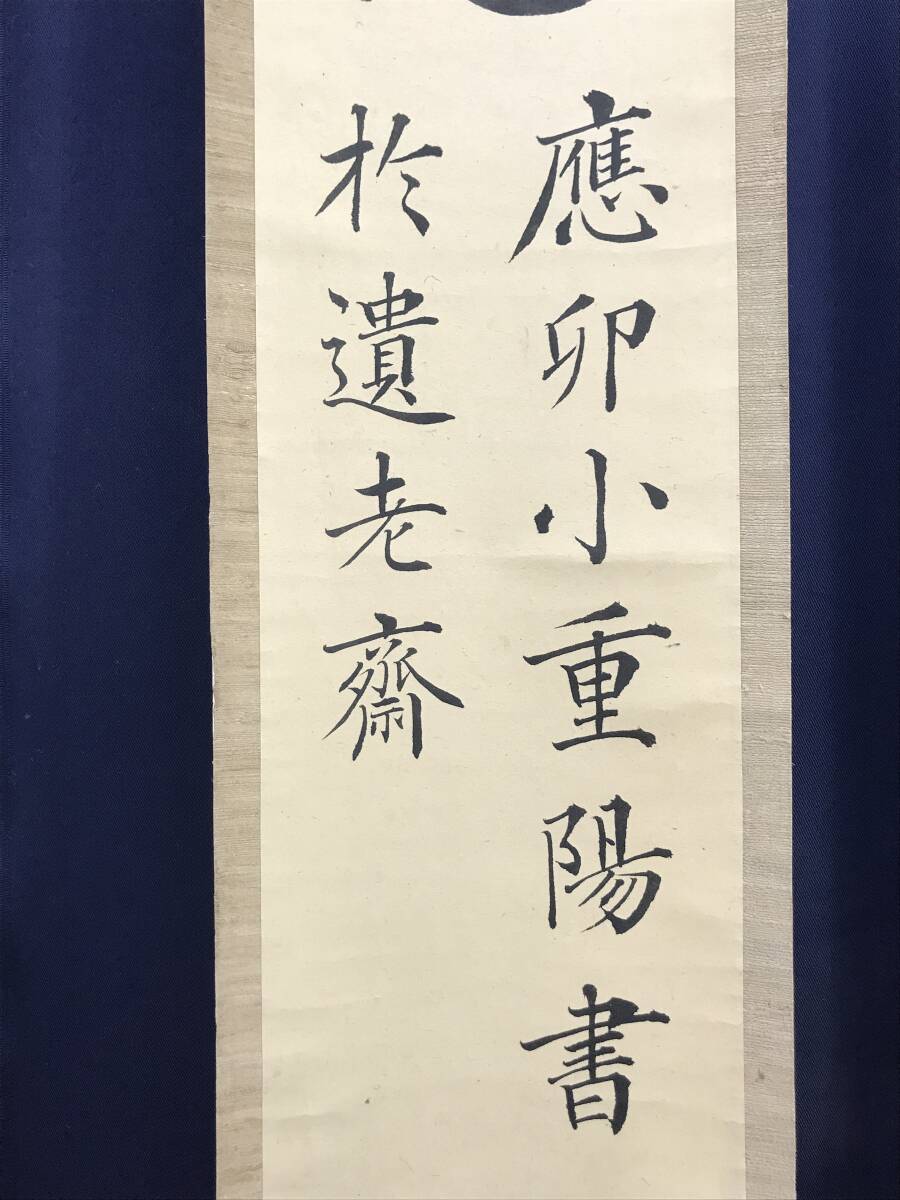 應卯小重陽書
於遺老齋